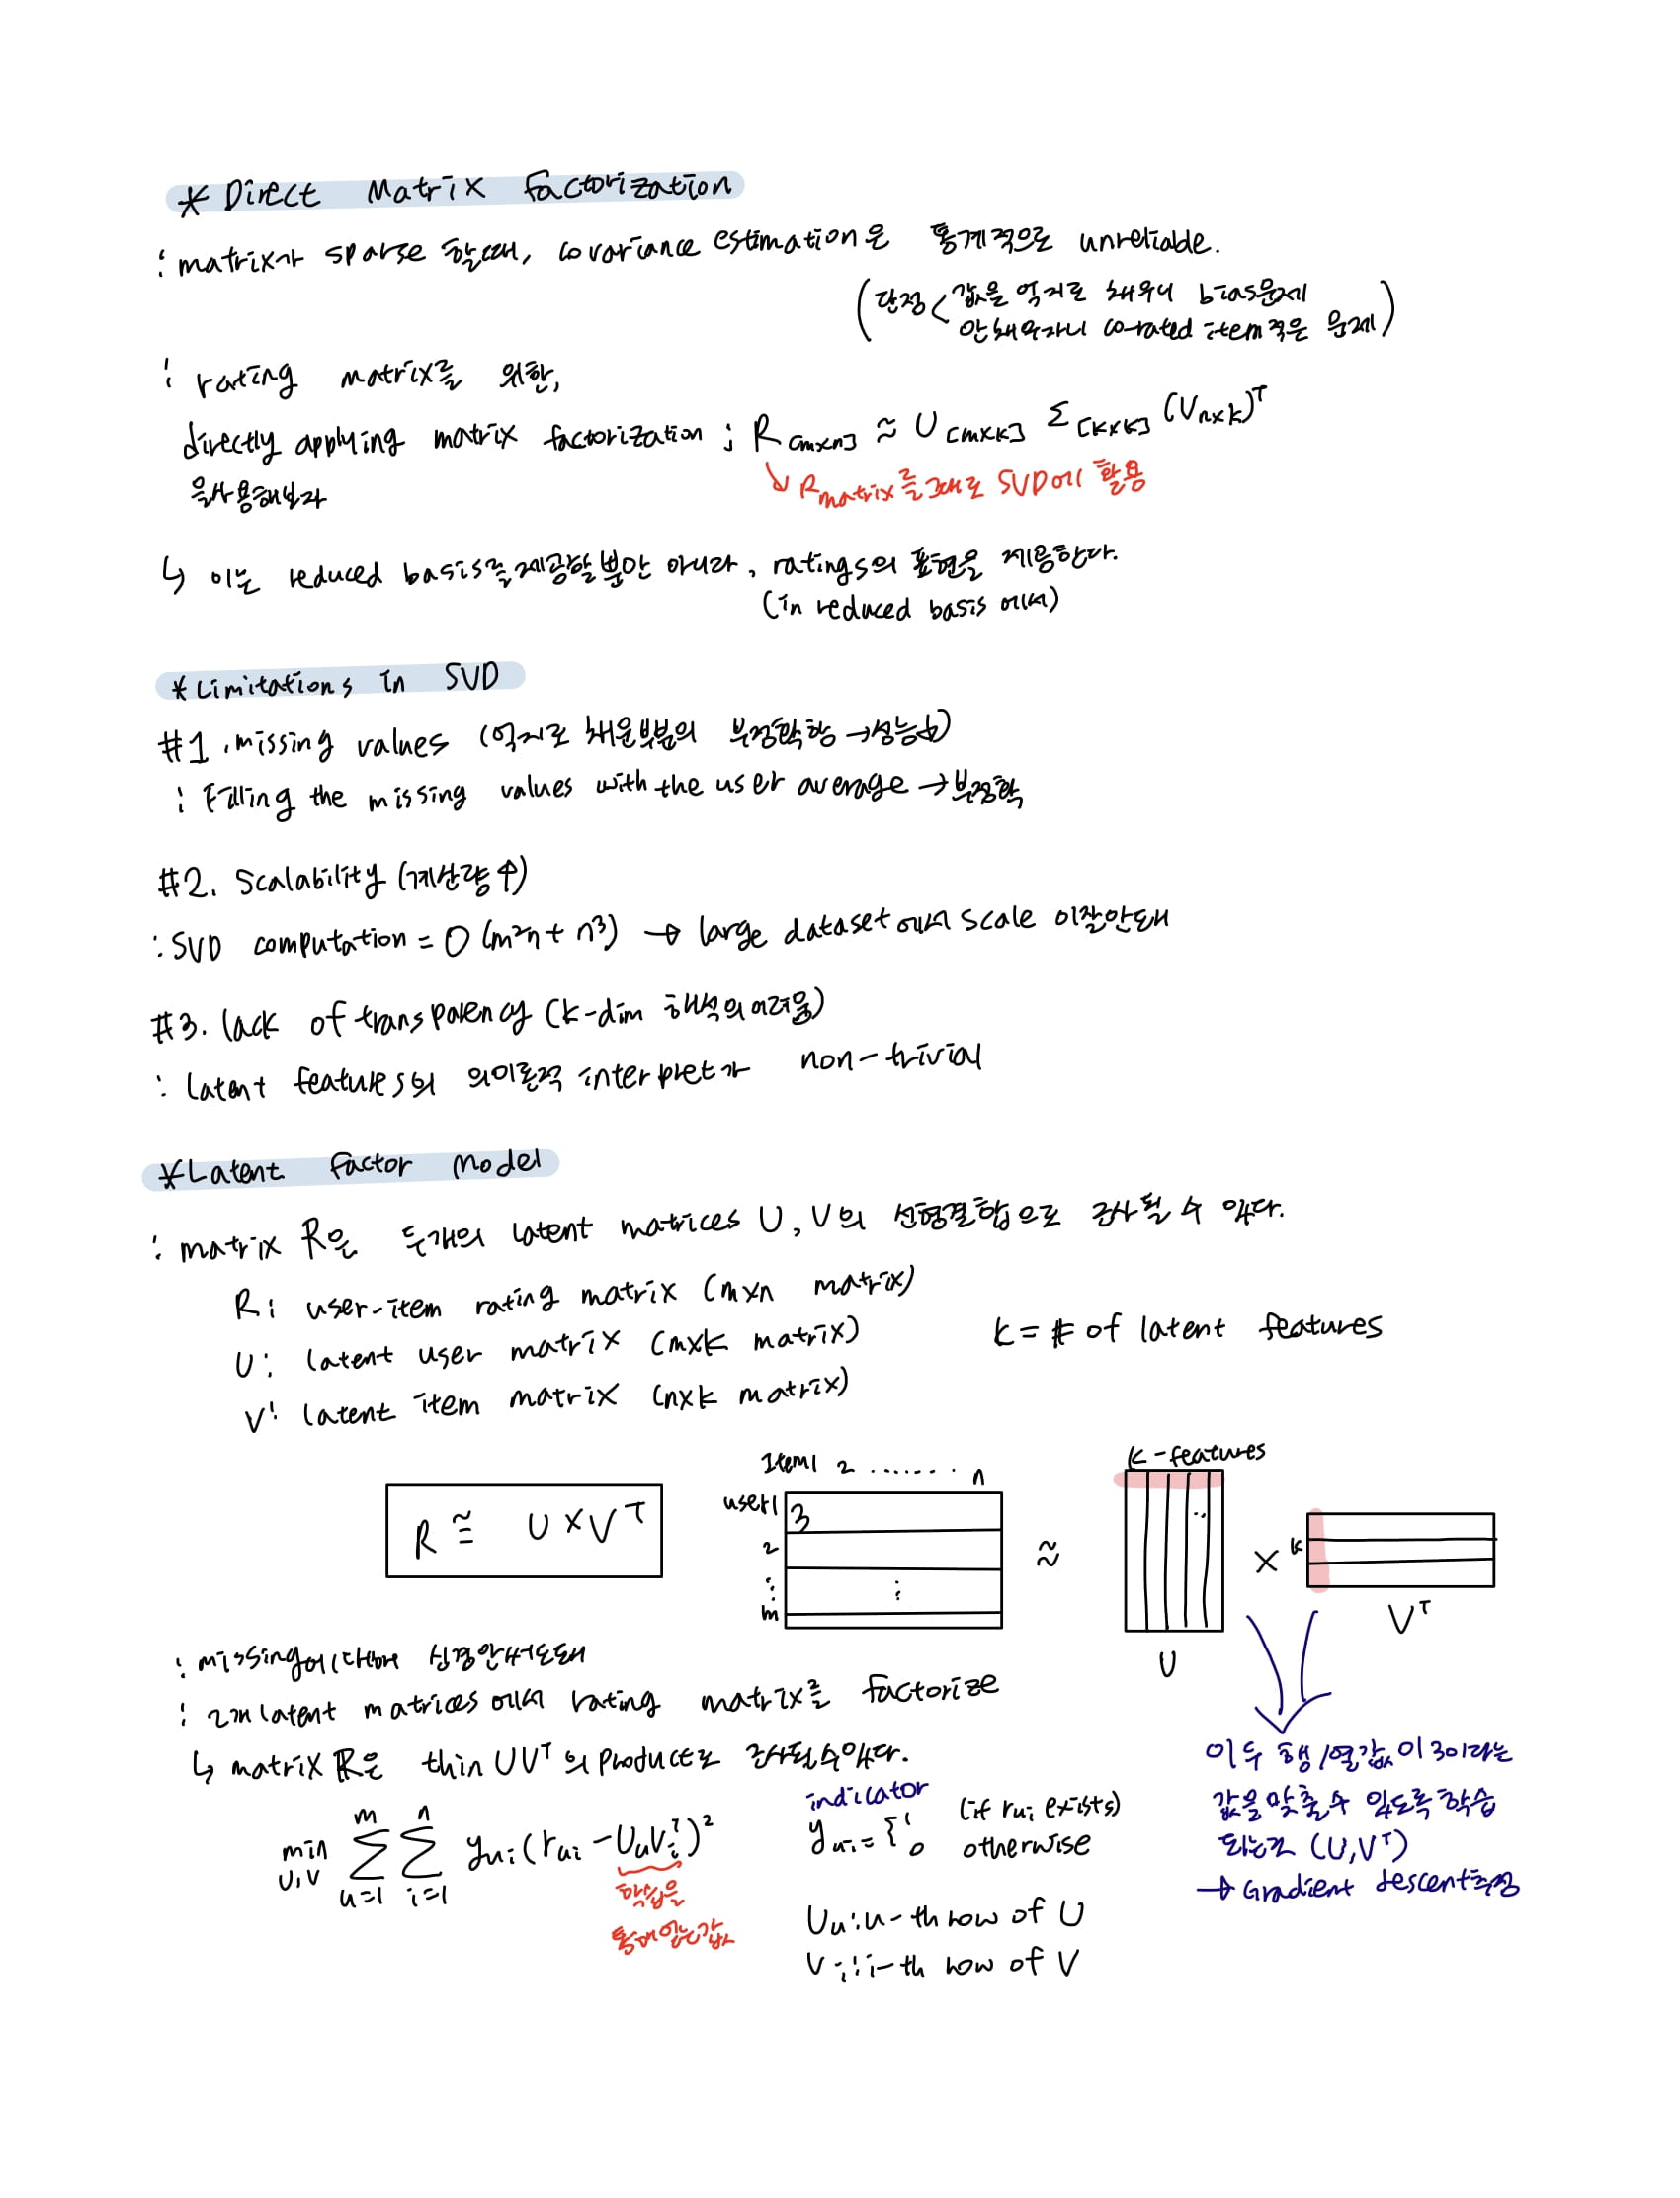 * Direct Matrix Factorization
: matrix가 sparse 할때, covariance estimation은 통계적으로 unreliable.
(단점 < 값을 억지로 채우니 bias문제
안채우자니 co-rated item적은 문제)
: rating matrix를 위한,
directly applying matrix factorization ; R[m×n] ≈ U[m×k] Σ[k×k] (Vn×k)ᵀ
을사용해보자
↳ R matrix를그대로 SVD에 활용
↳ 이는 reduced basis를제공할뿐만 아니라, ratings의 표현을 제공한다.
(in reduced basis 에서)
* Limitations in SVD
#1. missing values (억지로 채운부분의 부정확함 → 성능↓)
: Filling the missing values with the user average → 부정확
#2. Scalability (계산량↑)
: SVD computation = O(m²n + n³) → large dataset에서 scale 이잘안돼
#3. lack of transparency (k-dim 해석의어려움)
: latent features의 의미론적 interpret가 non-trivial
* Latent Factor Model
: matrix R은 두개의 latent matrices U, V의 선형결합으로 근사될 수 있다.
R: user-item rating matrix (m×n matrix)
U: latent user matrix (m×k matrix)
k = # of latent features
V: latent item matrix (n×k matrix)
R ≅ U × Vᵀ
Item1 2 ........ n
user1 3
2
⋮ ⋮
m
≈
k-features
..
U
×
k
Vᵀ
: missing에대해 신경안써도돼
: 2개 latent matrices에서 rating matrix를 factorize
↳ matrix R은 thin UVᵀ의 product로 근사될수있다.
min U,V Σ u=1 m Σ i=1 n yui (rui - UuViᵀ)²
학습을
통해얻는값
indicator
yui = { 1 (if rui exists)
0 otherwise
Uu: u-th row of U
Vi: i-th row of V
이두 행/열값이 3이라는
값을맞출수 있도록학습
되는것 (U,Vᵀ)
→ Gradient descent측정